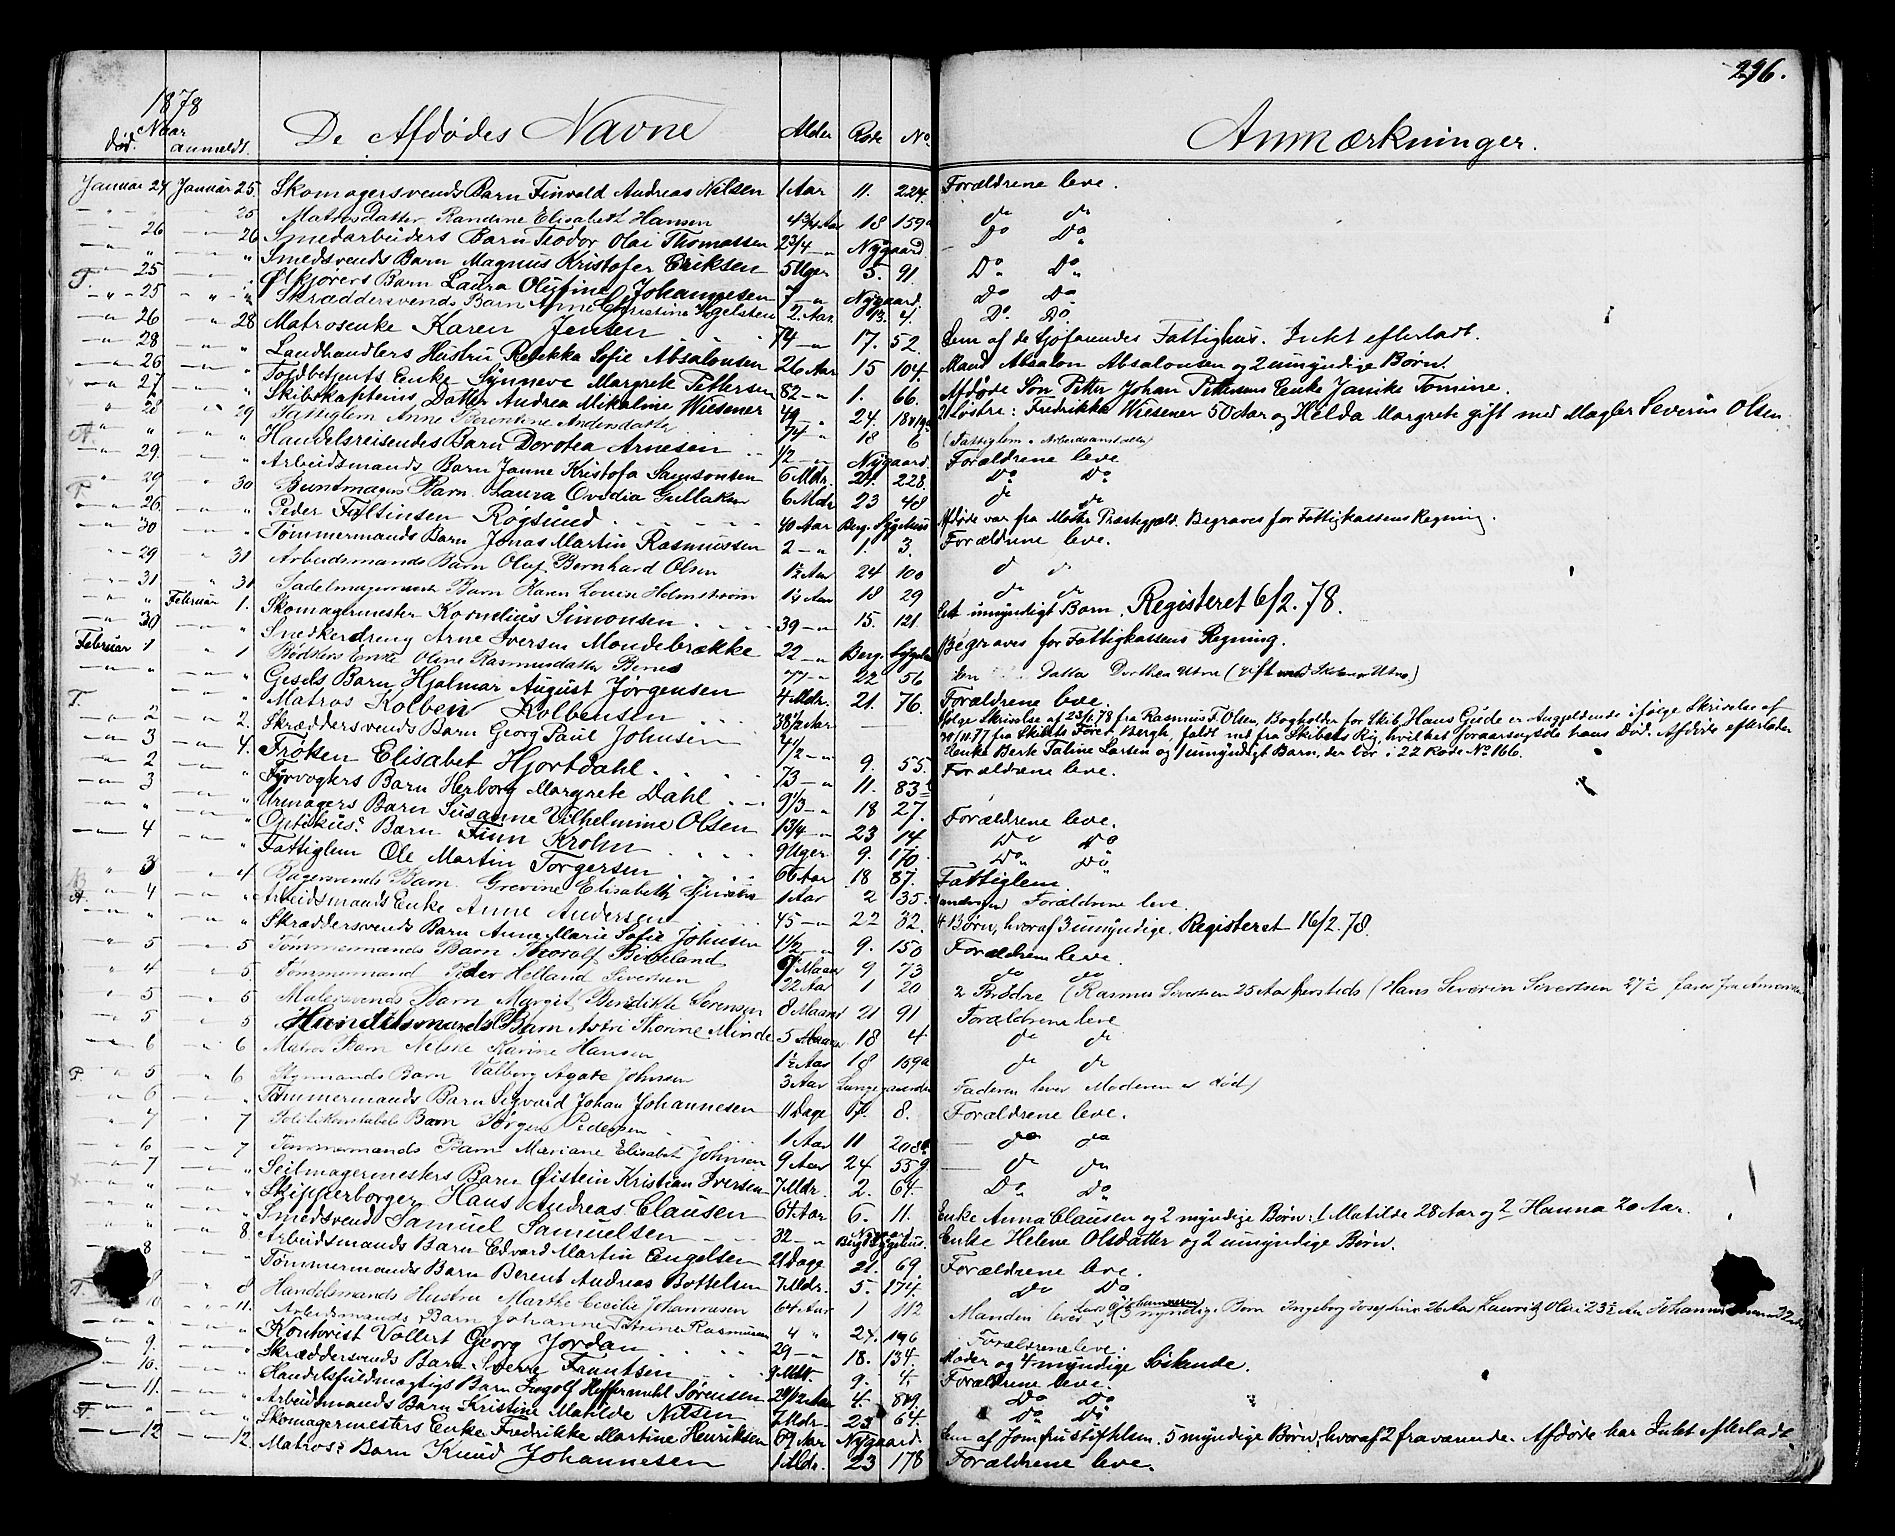 296.
1878
Naar
død. anmeldt. De Afdødes Navne Alder Rode No. Anmærkninger.
Januar 24 Januar 25. Skomagersvends Barn Finvald Andreas Nilsen 1 Aar 11. 224. Forældrene leve.
25 Matros Datter Randine Elisabeth Hansen 4 3/4 Aar 18 159a do do
26 26 Smedarbeiders Barn Teodor Olai Thomassen 2 3/4 Nygaard Do Do
" " Smedsvends Barn Magnus Kristofer Eriksen 5 Uger 5. 91. Do Do
T. 25 Ølkjørers Barn Laura Olufine Johannesen 7 Nygaard. Do Do
25 " Skræddersvends Barn Anne Christine 2. Aar 13. 4. Do. Do.
26 28 Matrosenke Karen Jensen 74 17. 52. Lem af de Sjøfarendes Fattighus. Intet efterladt.
28 " Landhandlers Hustru Rebekka Sofie Absalonsen 26 Aar 15 104. Mand Absalon Absalonsen og 2 umyndige Børn.
26 " Toldbetjents Enke Synneve Margrete Pettersen 82 1. 66. Afdøde Søn Petter Johan Pettersens Enke Janike Tomine.
27 " Skibskapteins Datter Andrea Mikaline Wiesener 49 24. Søstre: Fredrikke Wiesener 50 Aar og Helda Margrete gift med Mægler Severin Olsen.
28 29 Fattiglem Anne Berentine Andersdatter 74 18 6 (Fattiglem Arbeidsanstalten)
A. " " Handelsreisendes Barn Dorotea Arnesen 1/2 Nygaard Forældrene leve.
29. " Arbeidsmands Barn Janne Kristofa Samsonsen 6 Mdr. 24. 228. Do Do
29 30 Buntmagers Barn Laura Ovidia Gullaksen 6 Mdr 23 48 do do
26. " Peder Faltinsen Røgsund 40 Aar Berg. Sygehus Afdøde var fra Præstegjæld. Begraves for Fattigkassens Regning.
30 " Tømmermands Barn Jonas Martin Rasmussen 2 1. 3. Forældrene leve.
29 31 Arbeidsmands Barn Oluf Bernhard Olsen 1 1/2 Aar 24 100 do do
31 31 Sadelmagersvends Barn Karen Louise Holmstrøm 1 1/4 Aar 18 29 do do
" Februar 1. Skomagermester Kornelius Simonsen 39 15. 121. Et umyndigt Barn. Registeret 6/2. 78.
30 " Snedkerdreng Arne Iversen Mondebrække 22 Berg. Sygehus Begraves for Fattigkassens Regning.
Februar 1 1 Enke Oline Rasmusdatter 77 22 56 Datter Dorthea Utne (Gift med Utne)
" " Gesels Barn Hjalmar August Jørgensen 4 Mdr. 21. 76. Forældrene leve.
T. " Matros Kolben Kolbensen 38 1/2 Aar Ifølge Skrivelse af 23/1 78 fra Rasmus F. Olsen, Bogholder for Skib Hans Gude er Angjeldende ifølge Skrivelse af
20/11 77 fra Skibets Fører Bergh, faldt ned fra Skibets Rig, hvilket foraarsagede hans Død. Afdøde efterlader
Enke Berte Taline Larsen og 1 umyndigt Barn, der bor i 22 Rode No 166.
2 2. Skræddersvends Barn Georg Paul Johnsen 4 1/2 9. 55. Forældrene leve.
3 4. Frøken Elisabet Hjortdahl 73 11. 83
2 " Fyrvogters Barn Herborg Margrete Dahl 9 1/3 18 27. Forældrene leve.
3 " Urmagers Barn Susanne Vilhelmine Olsen 1 3/4 23 14 Do Do
" " Optikus's Barn Finn Krohn 9 Uger. 9. 170. Do Do
4 " Fattiglem Ole Martin Torgersen 66 Aar 18 87. Fattiglem.
3 4 Bagersvends Barn Grevine Elisabeth 1 Aar 2 35. Forældrene leve.
A. 4 " Arbeidsmands Enke Anne Andersen 45 22 32. 4 Børn, hvoraf 3 umyndige. Registeret 16/2. 78.
" " Skræddersvends Barn Anne Marie Sofie Johnsen 1 1/2 9. 150 Forældrene leve.
5 5 Tømmermands Barn Thoralf Birkeland Maan 9 73 do do
4 5. Tømmermand Peder Helland Sivertsen 22 Aar 1 20 2 Brødre (Rasmus Sivertsen 25 Aar hersteds (Hans Severin Sivertsen 27 faren fra Amerika
5 5 Malersvends Barn Margit Bendikte Sørensen 8 Maaned 21 91 Forældrene leve
5 5 Handelsmands Barn Astri Thorine Minde 5 Maan 18 4 do do
6 6 Matros Barn Nilske Karine Hansen 1 1/2 Aar 18 159a do do
5 6 Styrmands Barn Valborg Agate Johnsen 3 Aar Lungegaarden Faderen lever Moderen er død)
6 " Tømmermands Barn Sigvard Johan Johannesen 11 Dage 8. Forældrene leve.
7 7 Politikonstabels Barn Jørgen Pedersen 1 Aar 11 208 do do
6 7 Tømmermands Barn Mariane Elisabet Johnsen 9 Aar 24 559 do do
7 " Seilmagermesters Barn Øistein Kristian Iversen 7 Mdr. 2. 64. Do Do
" " Skipperborger Hans Andreas Clausen 64 Aar 6. 11. Enke Anna Clausen og 2 myndige Børn: 1 Matilde 28 Aar og 2 Hanna 20 Aar.
" " Smedsvend Samuel Samuelsen 32 Berg. Sygehus. Enke Helene Olsdatter og 2 umyndige Børn.
8 8. Arbeidsmands Barn Edvard Martin Engelsen 21 Dage 21. 69 Forældrene leve.
" Tømmermands Barn Berent Andreas Bottelsen 7 Mdr. 5. 174. Do Do
T. 8 8 Handelsmands Hustru Marthe Cecilie Johannesen 64 Aar 1 112 Manden lever myndige Børn Ingeborg Josephine 26 Aar Lauritz Olai 23 Aar Johannes
10. 11. Arbeidsmands Barn Johanne Petrine Rasmussen 4 " 24. 196 Forældrene leve.
" " Kontorist Vollert Georg Jordan 29 18. 134. Moder og 4 myndige Søskende.
9. " Skræddersvends Barn Sverre Frantsen 9 Mdr. 9. 4. Forældrene leve.
10. " Handelsfuldmægtigs Barn Ingolf Heffermehl Sørensen 2 1/2 Aar 4. 849. Do Do
11. " Arbeidsmands Barn Kristine Matilde Nilsen 7 Mdr. 23 64. Do Do
" " Skomagermesters Enke Fredrikke Martine Henriksen 69 Aar Nygaard. Lem af Jomfrustiftelsen. 5 myndige Børn, hvoraf 2 fraværende. Afdøde har Intet efterladt.
12 12. Matros's Barn Knud Johannesen 1 Mdr. 23 178 Forældrene leve.